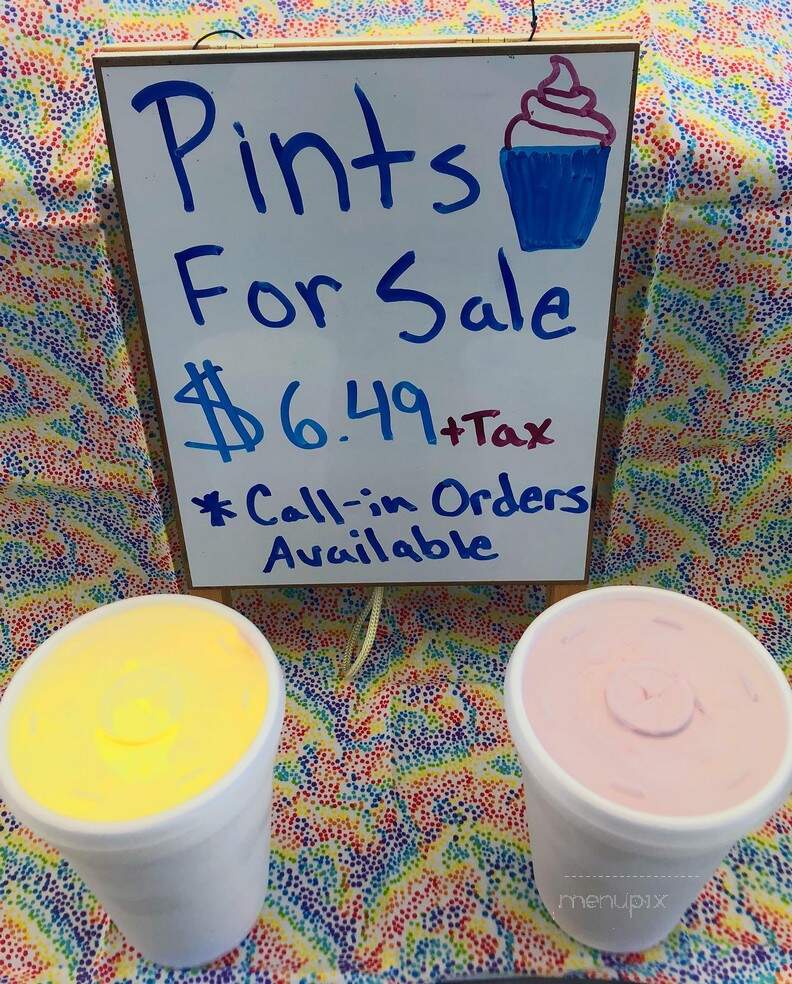 Pints
For Sale
$6.49 +Tax
* Call-in Orders
Available
menupix